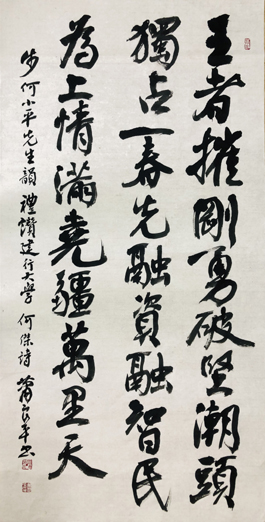 王者摧剛勇破堅潮頭
獨占一春先融資融智民
為上情滿堯疆萬里天
步何小平先生韻 禮讚建行大學 何傑詩